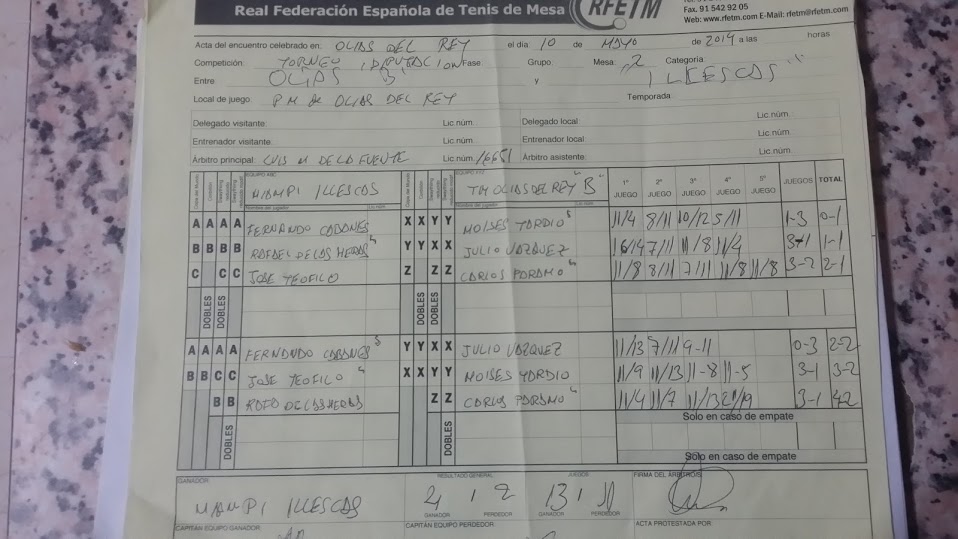 Real Federación Española de Tenis de Mesa
RFETM
Fax. 91 542 92 05
Web: www.rfetm.com E-Mail: rfetm@rfetm.com
Acta del encuentro celebrado en: OLIAS DEL REY el día 10 de MAYO de 2014 a las horas
Competición: TORNEO DIPUTACION Fase: Grupo: Mesa: 2 Categoría:
Entre OLIAS "B" y ILLESCAS
Local de juego: P M de OLIAS DEL REY Temporada
Delegado visitante: Lic núm. Delegado local: Lic.núm.
Entrenador visitante: Lic núm. Entrenador local: Lic.núm.
Árbitro principal: LUIS M DE LA FUENTE Lic núm. 16651 Árbitro asistente: Lic.núm.
EQUIPO ABC MAMPI ILLESCAS EQUIPO XYZ TM OLIAS DEL REY "B" 1º JUEGO 2º JUEGO 3º JUEGO 4º JUEGO 5º JUEGO JUEGOS TOTAL
A A A A FERNANDO CABONES X X Y Y MOISES TORDIO 11/4 8/11 10/12 5/11 1-3 0-1
B B B B RAFAEL DE LAS HERAS Y Y X X JULIO VAZQUEZ 16/14 7/11 11/8 11/4 3-1 1-1
C C C JOSE TEOFILO Z Z Z CARLOS PARAMO 11/8 8/11 7/11 11/8 11/8 3-2 2-1
DOBLES DOBLES DOBLES DOBLES
A A A A FERNANDO CABONES Y Y X X JULIO VAZQUEZ 11/13 7/11 9-11 0-3 2-2
B B C C JOSE TEOFILO X X Y Y MOISES TORDIO 11/9 11/13 11-8 11-5 3-1 3-2
B B RAFA DE LAS HERAS Z Z CARLOS PARAMO 11/4 11/7 11/13 21/19 3-1 4-2
Solo en caso de empate
DOBLES DOBLES
Sólo en caso de empate
GANADOR RESULTADO GENERAL JUEGOS FIRMA DEL ÁRBITRO
MAMPI ILLESCAS 4 2 13 11
GANADOR PERDEDOR GANADOR PERDEDOR
CAPITÁN EQUIPO GANADOR CAPITÁN EQUIPO PERDEDOR ACTA PROTESTADA POR